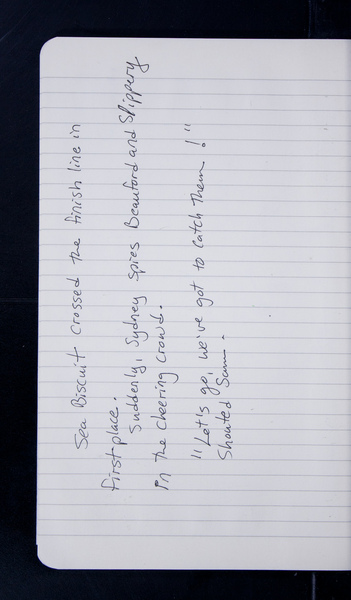 Sea Biscuit crossed the finish line in
first place.
Suddenly, Sydney spies Beauford and Slippery
in the cheering crowd.
"Let's go, we've got to catch them!"
Shouted Sam.